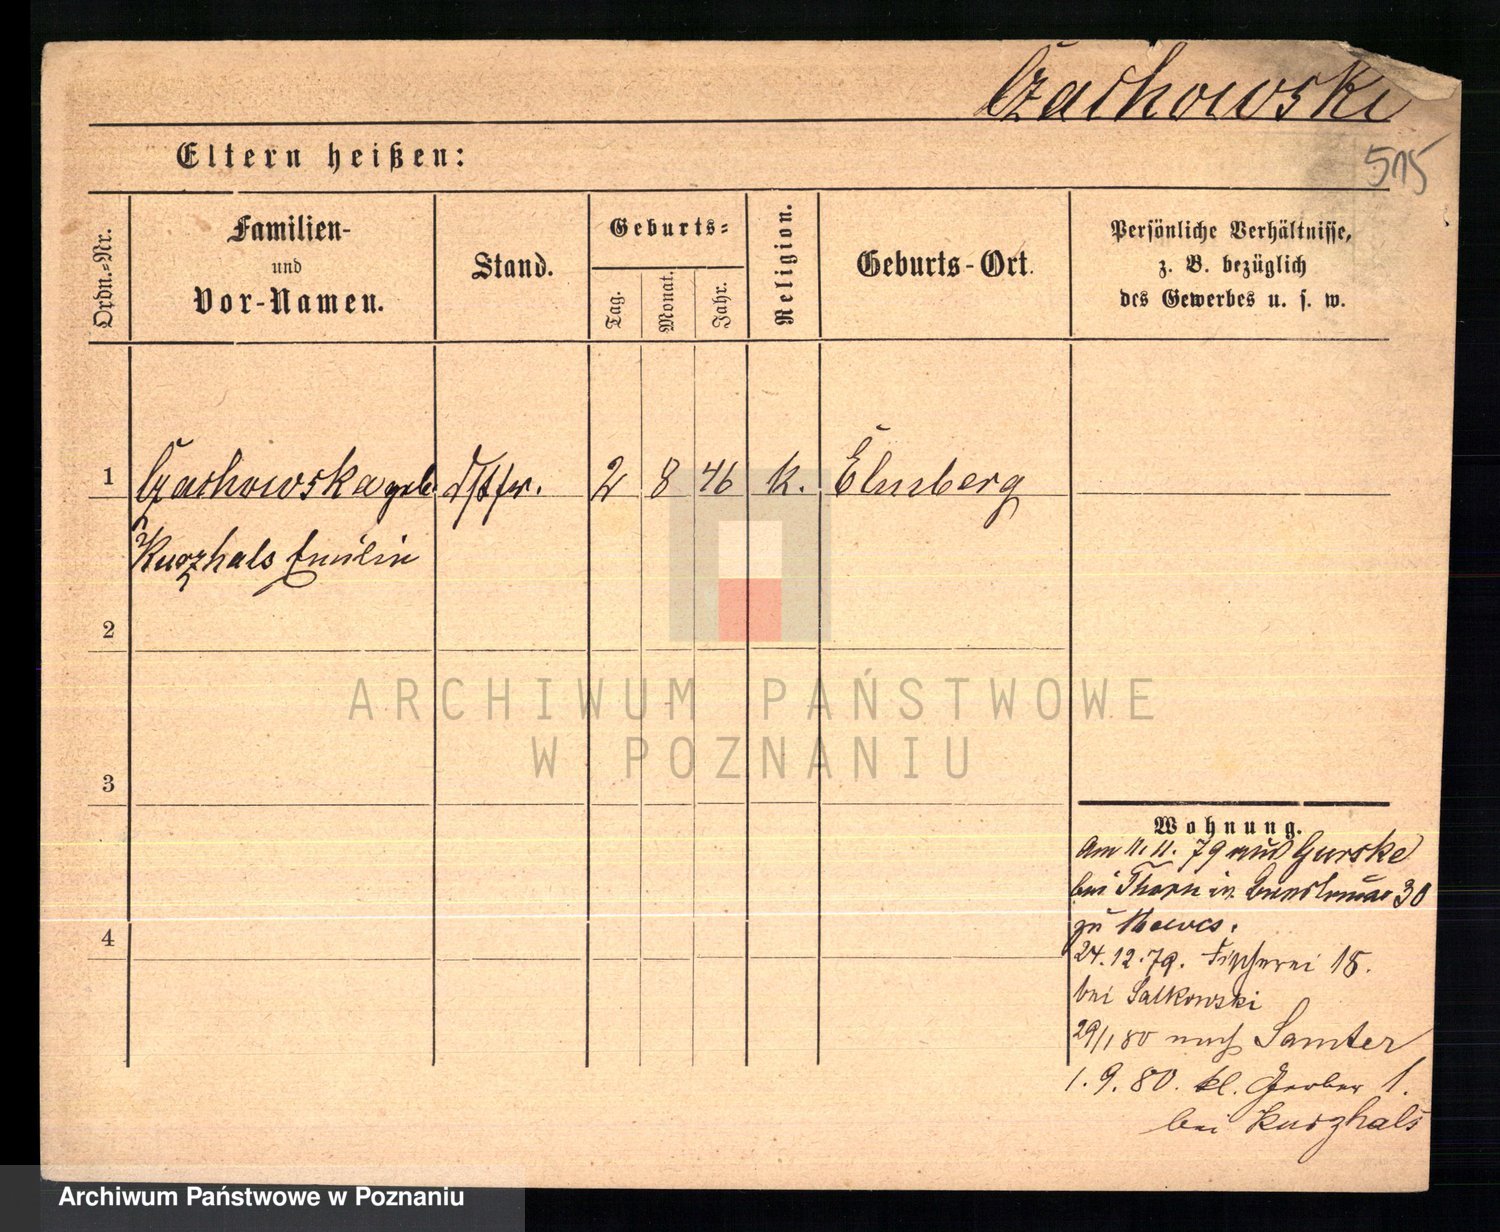 Czachowski
515
Eltern heißen:
Ordn.-Nr.
Familien-
und
Vor-Namen.
Stand.
Geburts-
Tag.
Monat.
Jahr.
Religion.
Geburts-Ort.
Persönliche Verhältnisse,
z. B. bezüglich
des Gewerbes u. s. w.
1
Czachowska geb.
2 8 46 k.
Kurzhals Emilie
2
3
4
Wohnung.
Am 11.11.79 aus Gurske
bei Thorn in 30
zu
24.12.79. Fischerei 18.
bei Salkowski
29/1 80 nach Samter
1.9.80. kl. Gerber 1.
bei Kurzhals
ARCHIWUM PAŃSTWOWE
W POZNANIU
Archiwum Państwowe w Poznaniu